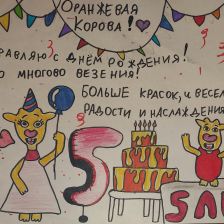 ОРАНЖЕВАЯ
КОРОВА!
С ДНЁМ РОЖДЕНИЯ!
МНОГОВО ВЕЗЕНИЯ!
БОЛЬШЕ КРАСОК, И
РАДОСТИ И НАСЛАЖДЕНИЯ
5
5 Л